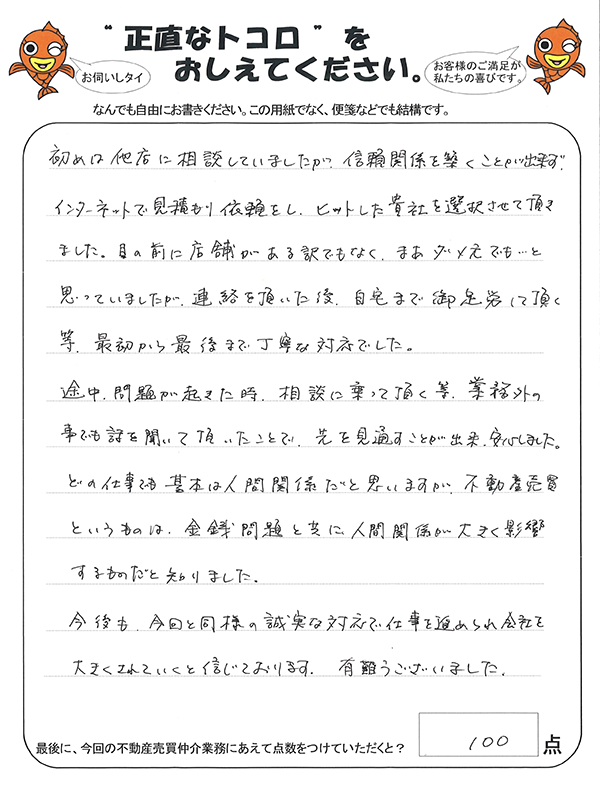 "正直なトコロ"を
おしえてください。
お伺いしタイ
お客様のご満足が
私たちの喜びです。
なんでも自由にお書きください。この用紙でなく、便箋などでも結構です。
初めは他店に相談していましたが、信頼関係を築くことが出来ず、
インターネットで見積もり依頼をし、ヒットした貴社を選択させて頂き
ました。目の前に店舗がある訳でもなく、まあダメ元でも…と
思っていましたが、連絡を頂いた後、自宅まで御足労して頂く
等、最初から最後まで丁寧な対応でした。
途中、問題が起きた時、相談に乗って頂く等、業務外の
事でも話を聞いて頂いたことで、先を見通すことが出来、安心しました。
どの仕事でも基本は人間関係だと思いますが、不動産売買
というものは、金銭問題と共に人間関係が大きく影響
するものだと知りました。
今後も、今回と同様の誠実な対応で仕事を進められ会社を
大きくされていくと信じております。有難うございました。
最後に、今回の不動産売買仲介業務にあえて点数をつけていただくと?
100点